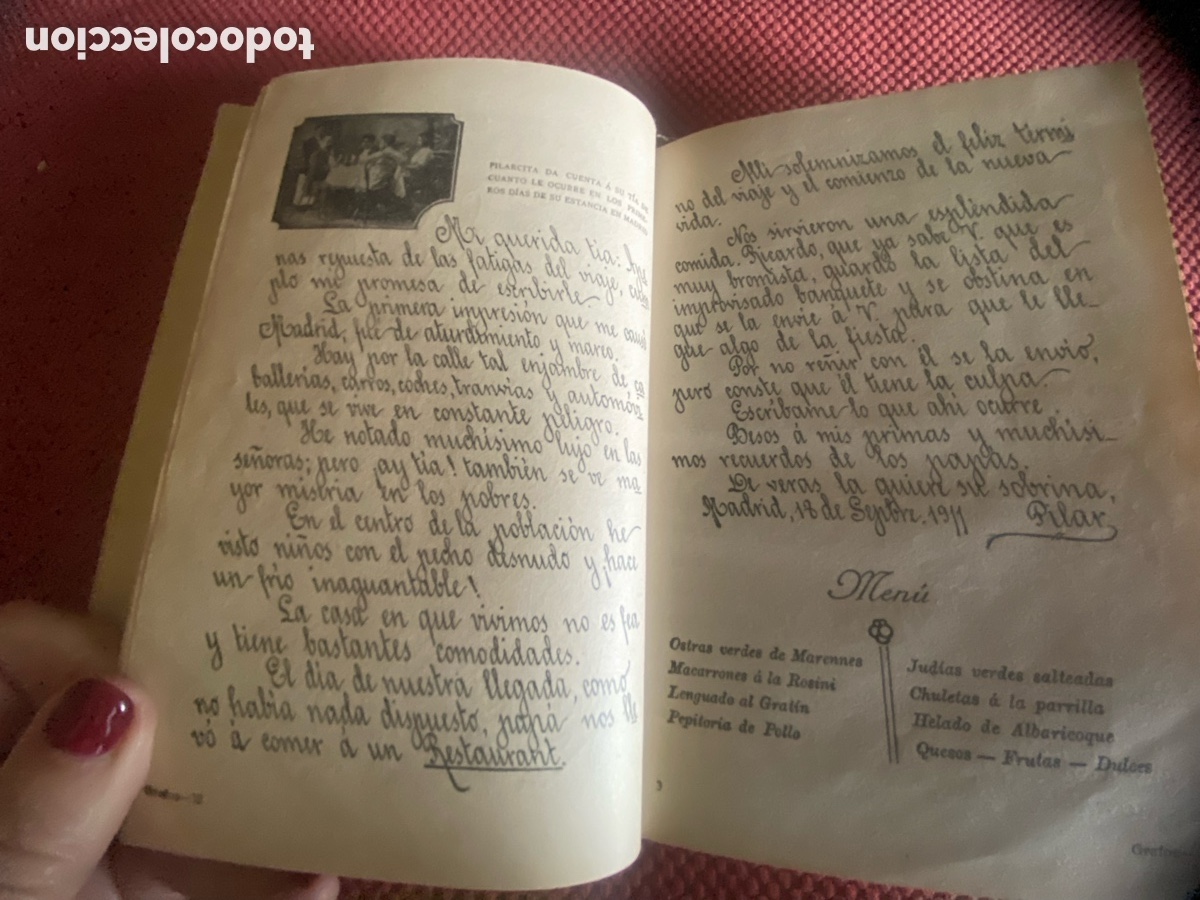 todocoleccion
PILARCITA DA CUENTA Á SU TÍA DE
CUANTO LE OCURRE EN LOS PRIME-
ROS DÍAS DE SU ESTANCIA EN MADRID
Mi querida tia: Ape
nas repuesta de las fatigas del viaje, cum
plo mi promesa de escribirle
La primera impresión que me causó
Madrid, fué de aturdimiento y mareo.
Hay por la calle tal enjambre de ca
ballerías, carros, coches, tranvias y automóvi
les, que se vive en constante peligro.
He notado muchísimo lujo en las
señoras; pero ¡ay tía! también se ve ma
yor miseria en los pobres.
En el centro de la población he
visto niños con el pecho desnudo y ¡hace
un frío inaguantable!
La casa en que vivimos no es fea
y tiene bastantes comodidades.
El día de nuestra llegada, como
no había nada dispuesto, papá nos lle
vó á comer á un Restaurant.
Allí solemnizamos el feliz térmi
no del viaje y el comienzo de la nueva
vida.
Nos sirvieron una espléndida
comida. Ricardo, que ya sabe V. que es
muy bromista, guardó la lista del
improvisado banquete y se obstina en
que se la envie á V. para que le lle-
gue algo de la fiesta.
Por no reñir con él se la envío,
pero conste que él tiene la culpa.
Escríbame lo que ahí ocurre.
Besos á mis primas y muchísi-
mos recuerdos de los papás.
De veras la quiere su sobrina,
Madrid, 18 de Septbre. 1911 Pilar
Menú
Ostras verdes de Marennes
Macarrones á la Rosini
Lenguado al Gratín
Pepitoria de Pollo
Judías verdes salteadas
Chuletas á la parrilla
Helado de Albaricoque
Quesos — Frutas — Dulces